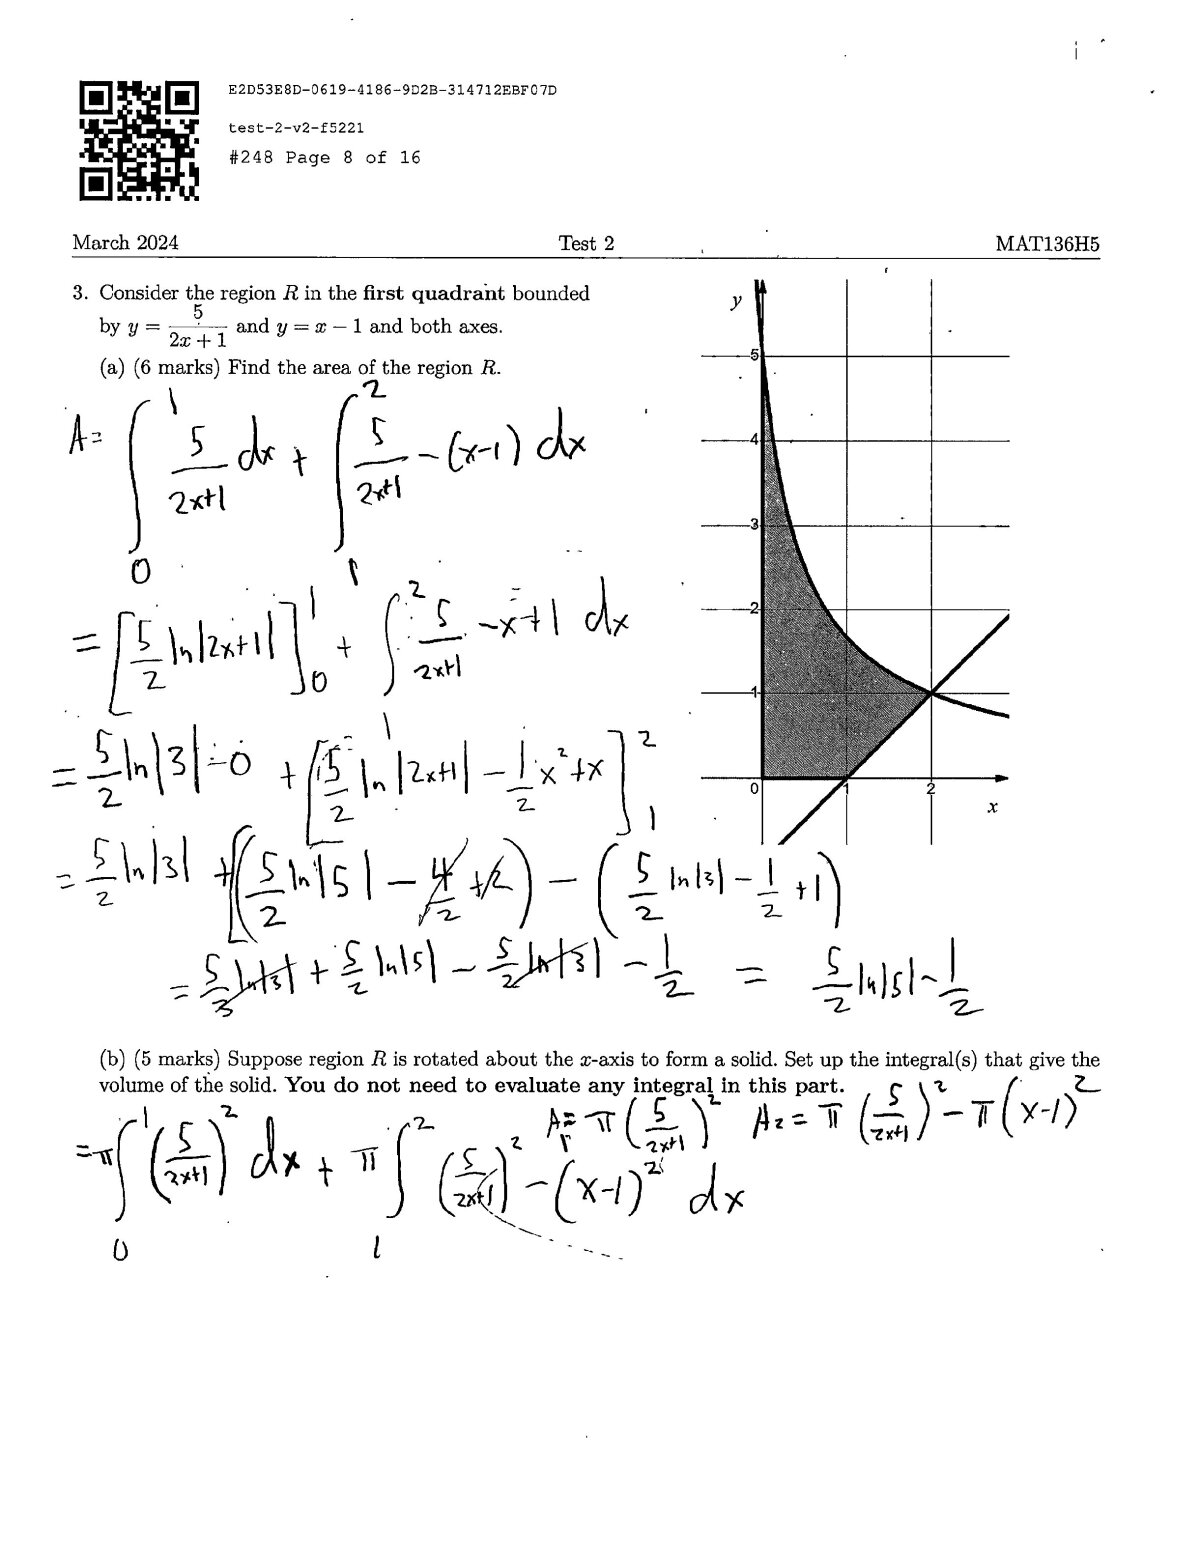 E2D53E8D-0619-4186-9D2B-314712EBF07D
test-2-v2-f5221
#248 Page 8 of 16
March 2024 Test 2 MAT136H5
3. Consider the region R in the first quadrant bounded
by y = 5/(2x + 1) and y = x − 1 and both axes.
(a) (6 marks) Find the area of the region R.
A = ∫_0^1 5/(2x+1) dx + ∫_1^2 5/(2x+1) − (x−1) dx
= [5/2 ln|2x+1|]_0^1 + ∫_1^2 5/(2x+1) −x+1 dx
= 5/2 ln|3| − 0 + [5/2 ln|2x+1| − 1/2 x² + x]_1^2
= 5/2 ln|3| + (5/2 ln|5| − 4/2 + 2) − (5/2 ln|3| − 1/2 + 1)
= 5/2 ln|3| + 5/2 ln|5| − 5/2 ln|3| − 1/2 = 5/2 ln|5| − 1/2
y
5
4
3
2
1
0 1 2
x
(b) (5 marks) Suppose region R is rotated about the x-axis to form a solid. Set up the integral(s) that give the
volume of the solid. You do not need to evaluate any integral in this part.
A₁ = π (5/(2x+1))² A₂ = π (5/(2x+1))² − π (x−1)²
= π ∫_0^1 (5/(2x+1))² dx + π ∫_1^2 (5/(2x+1))² − (x−1)² dx